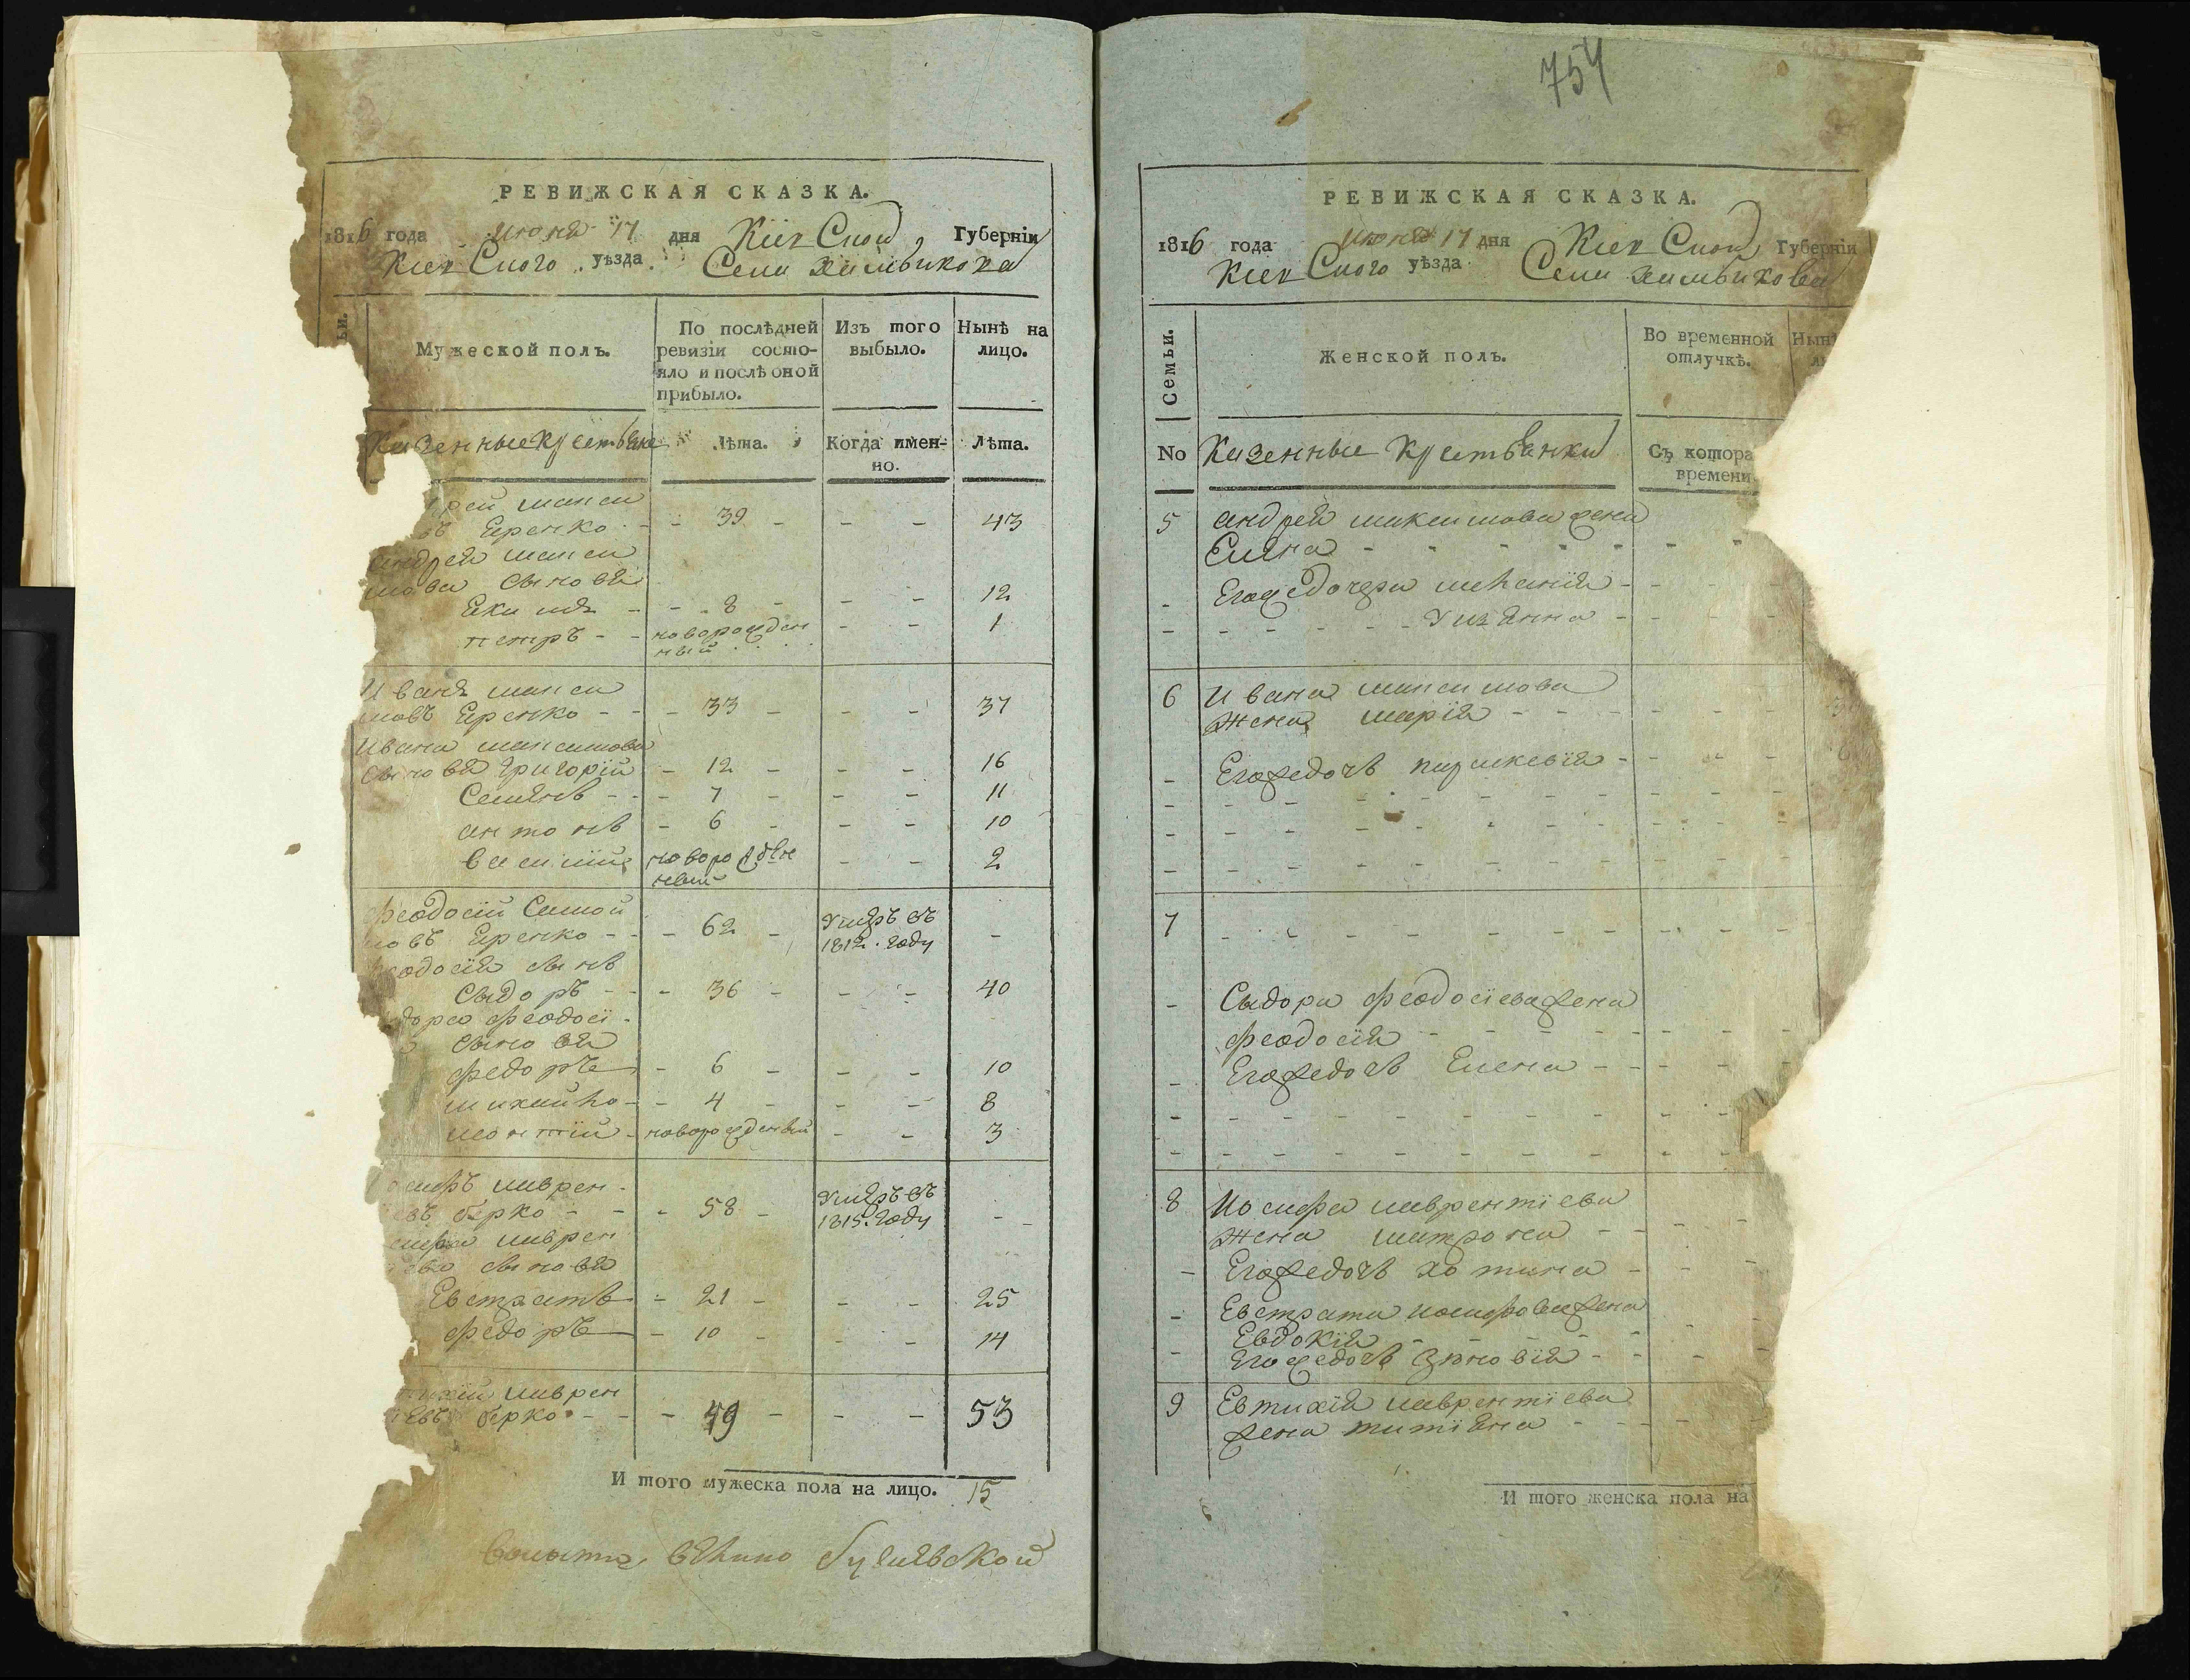 РЕВИЖСКАЯ СКАЗКА.
1816 года июня 17 дня Кіевской Губерніи
Кіевского уѣзда Села
Мужеской полъ.
По послѣдней ревизіи состо-
яло и послѣ оной
прибыло.
Изъ того выбыло.
Нынѣ на лицо.
Казенные Крестьяне
Лѣта.
Когда имен-
но.
Лѣта.
дрей макси
въ Яренко - - 39 - - - 43
андрея макси
мова сыновя
- - 8 - - - 12
петръ - - новорожден - - 1
ный
Иванъ макси
мовъ Яренко - - - 33 - - - 37
Ивана максимова
сыновя григорій - 12 - - - 16
Семенъ - - - 7 - - - 11
антонъ - 6 - - - 10
василій новорожден - - 2
ный
феодосій Самой
ловъ Яренко - - - 62 - Умеръ въ -
1812. году
еодосія сынъ
Сыдоръ - - - 36 - - - 40
дора феодосі
сыновя
федоръ - 6 - - - 10
михайло - - 4 - - - 8
монтій - новорожденный - - 3
осифъ лаврен
евъ берко - - - 58 - Умеръ въ
1815. году - -
сифа лаврен
ева сыновя
Евстратъ - 21 - - - 25
федоръ - 10 - - - 14
тихій лаврен
евъ берко - - - 49 - - - 53
И того мужеска пола на лицо. 15
754
РЕВИЖСКАЯ СКАЗКА.
1816 года июня 17 дня Кіевской Губерніи
Кіевского уѣзда Села
Семьи.
Женской полъ.
Во временной
отлучкѣ.
Нынѣ
No Казенные Крестьянки
Съ котора
времени
5 андрея максимова жена
Елена - - - - - - -
- Его же дочери меланія - - -
- - - - - - Ульянна - - -
6 Ивана максимова
жена марія - - - - -
- Его же дочь параскевія - - - -
7 - - - - - - - - -
- Сыдора феодосіева жена
феодосія - - - - - -
- Его же дочь Елена - - - -
8 Иосифа лаврентіева
жена матрона - - -
- Его же дочь хотина - - -
- Евстрата иосифова жена
Евдокія - - - -
- Его же дочь Зѣновія - - -
9 Евтихія лаврентіева
жена татіяна - - -
И того женска пола на